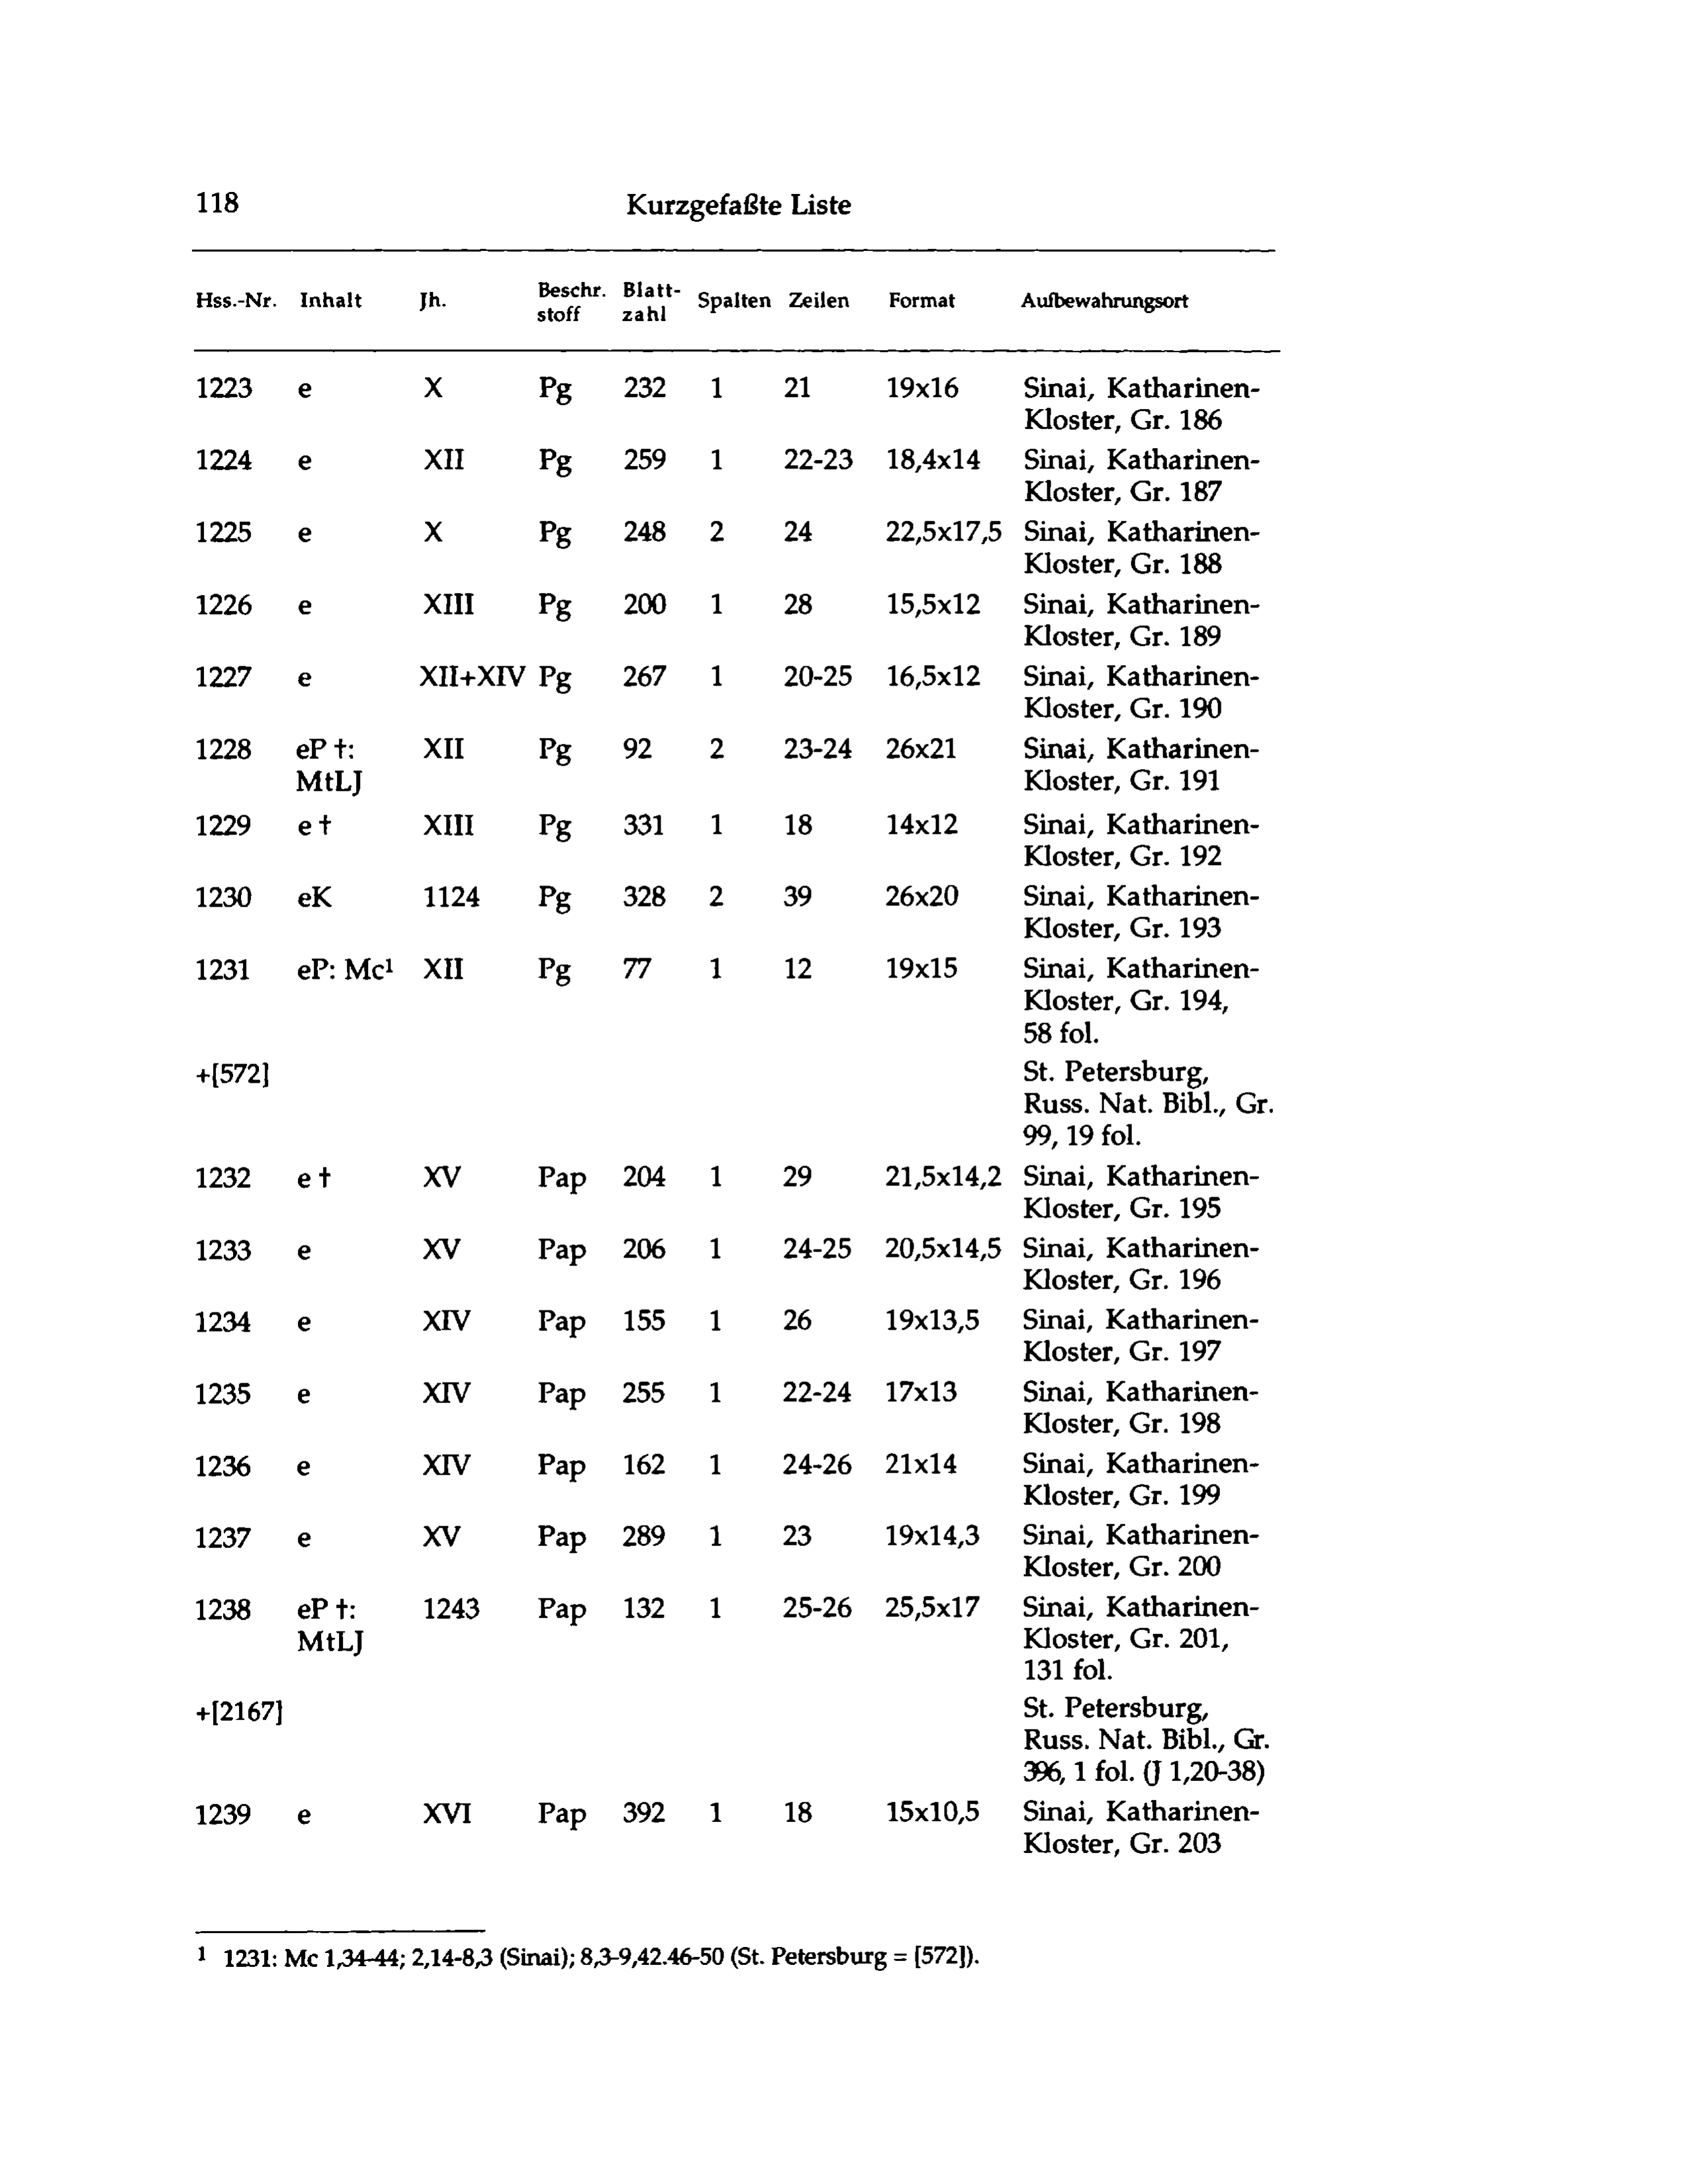 118 Kurzgefaßte Liste
Hss.-Nr. Inhalt Jh. Beschr. stoff Blatt- zahl Spalten Zeilen Format Aufbewahrungsort
1223 e X Pg 232 1 21 19x16 Sinai, Katharinen-
Kloster, Gr. 186
1224 e XII Pg 259 1 22-23 18,4x14 Sinai, Katharinen-
Kloster, Gr. 187
1225 e X Pg 248 2 24 22,5x17,5 Sinai, Katharinen-
Kloster, Gr. 188
1226 e XIII Pg 200 1 28 15,5x12 Sinai, Katharinen-
Kloster, Gr. 189
1227 e XII+XIV Pg 267 1 20-25 16,5x12 Sinai, Katharinen-
Kloster, Gr. 190
1228 eP †: XII Pg 92 2 23-24 26x21 Sinai, Katharinen-
MtLJ Kloster, Gr. 191
1229 e † XIII Pg 331 1 18 14x12 Sinai, Katharinen-
Kloster, Gr. 192
1230 eK 1124 Pg 328 2 39 26x20 Sinai, Katharinen-
Kloster, Gr. 193
1231 eP: Mc¹ XII Pg 77 1 12 19x15 Sinai, Katharinen-
Kloster, Gr. 194,
58 fol.
+[572] St. Petersburg,
Russ. Nat. Bibl., Gr.
99, 19 fol.
1232 e † XV Pap 204 1 29 21,5x14,2 Sinai, Katharinen-
Kloster, Gr. 195
1233 e XV Pap 206 1 24-25 20,5x14,5 Sinai, Katharinen-
Kloster, Gr. 196
1234 e XIV Pap 155 1 26 19x13,5 Sinai, Katharinen-
Kloster, Gr. 197
1235 e XIV Pap 255 1 22-24 17x13 Sinai, Katharinen-
Kloster, Gr. 198
1236 e XIV Pap 162 1 24-26 21x14 Sinai, Katharinen-
Kloster, Gr. 199
1237 e XV Pap 289 1 23 19x14,3 Sinai, Katharinen-
Kloster, Gr. 200
1238 eP †: 1243 Pap 132 1 25-26 25,5x17 Sinai, Katharinen-
MtLJ Kloster, Gr. 201,
131 fol.
+[2167] St. Petersburg,
Russ. Nat. Bibl., Gr.
396, 1 fol. (J 1,20-38)
1239 e XVI Pap 392 1 18 15x10,5 Sinai, Katharinen-
Kloster, Gr. 203
¹ 1231: Mc 1,34-44; 2,14-8,3 (Sinai); 8,3-9,42.46-50 (St. Petersburg = [572]).